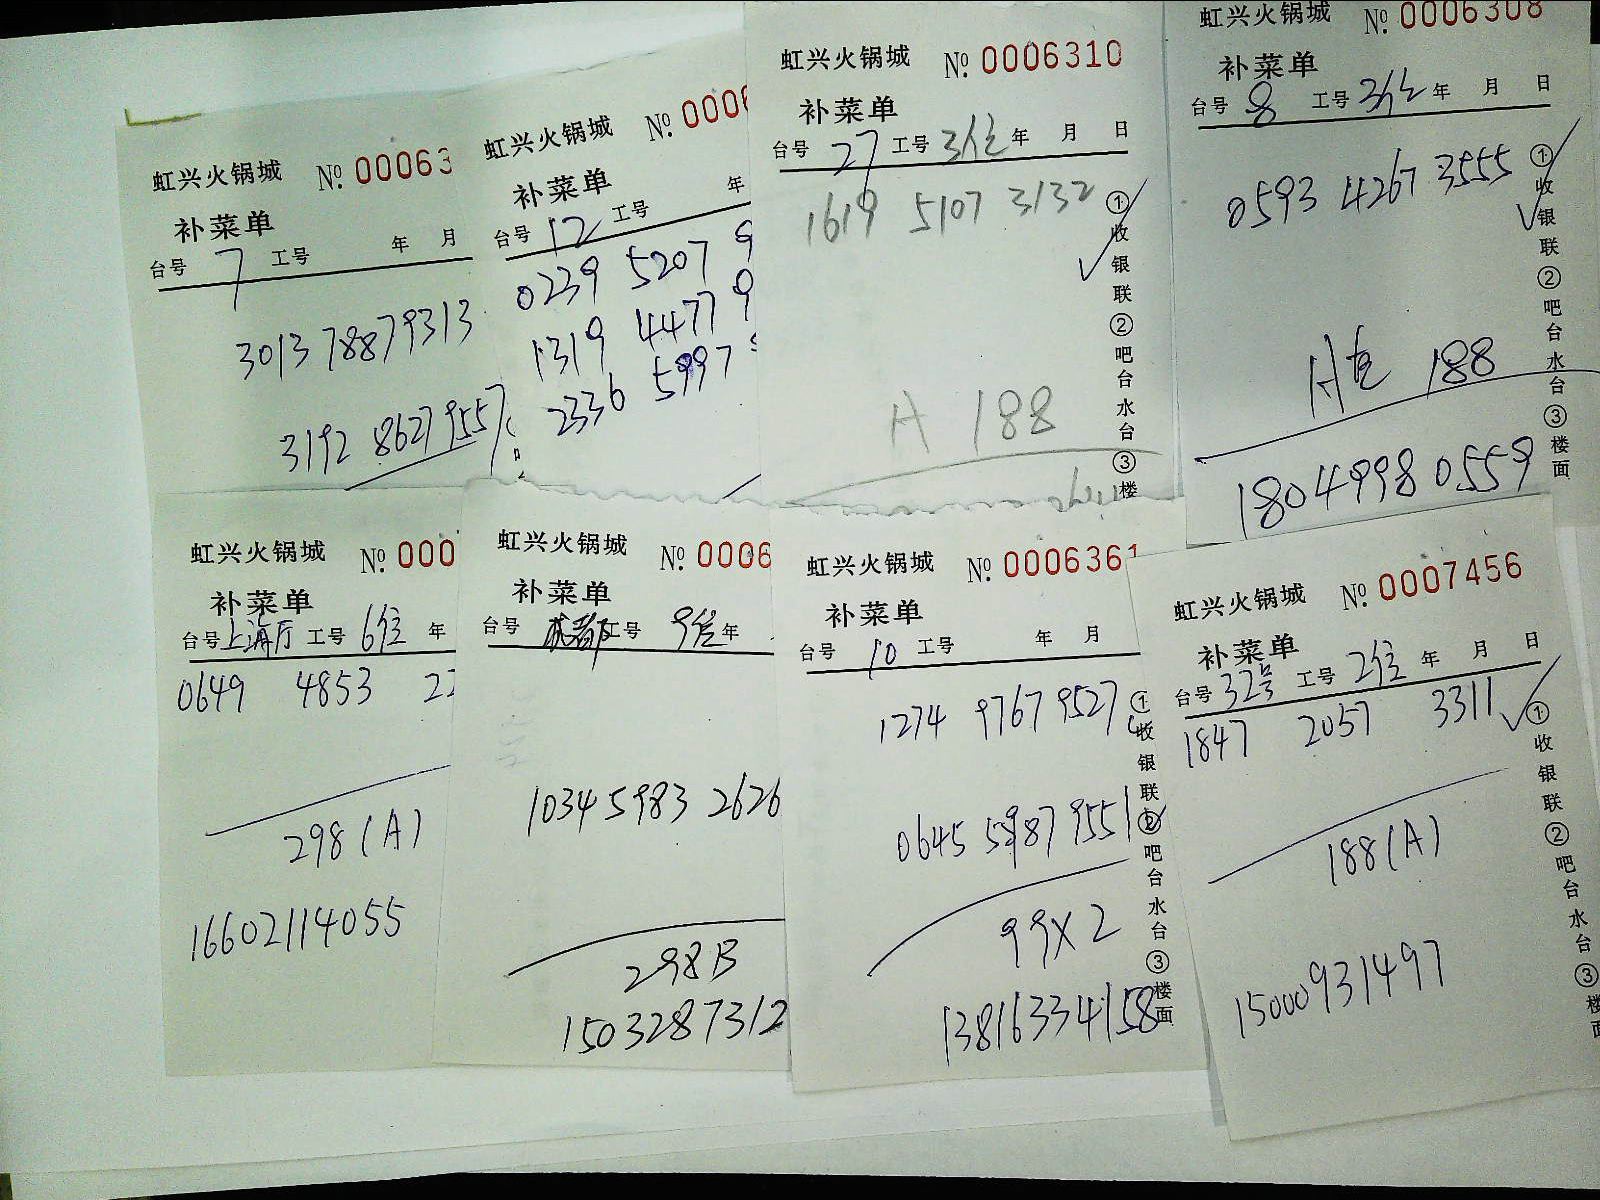 虹兴火锅城 №. 00063
补菜单
台号 7 工号 年 月
3013 7887 9313
3192 8627 9557
虹兴火锅城 №. 0006
补菜单
台号 12 工号 年
0239 5207 9
1319 4477 9
2336 5997
虹兴火锅城 №. 0006310
补菜单
台号 27 工号 3位 年 月 日
1619 5107 3132
A 188
①收银联②吧台水台③楼
虹兴火锅城 №. 0006308
补菜单
台号 8 工号 3位 年 月 日
0593 4267 3555
188
18049980559
①收银联②吧台水台③楼面
虹兴火锅城 №. 000
补菜单
台号 上海厅 工号 6位 年
0649 4853 22
298(A)
16602114055
虹兴火锅城 №. 0006
补菜单
台号 成都厅 工号 9位 年
1034 5983 2626
298B
1503287312
虹兴火锅城 №. 0006361
补菜单
台号 10 工号 年 月
1274 9767 9527
0645 5987 9551
99X2
13816334158
①收银联②吧台水台③楼面
虹兴火锅城 №. 0007456
补菜单
台号 32号 工号 2位 年 月 日
1847 2057 3311
188(A)
15000931497
①收银联②吧台水台③楼面